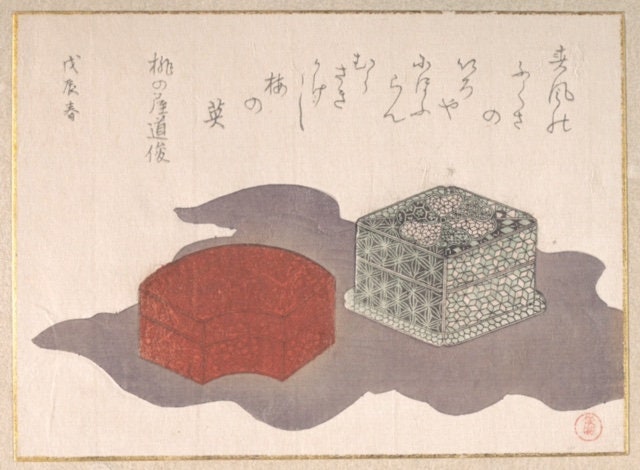 春風の
ふくさ
の
いろや
にほふ
らん
むら
さき
かけし
梅
の
英
桃の屋道俊
戊辰春